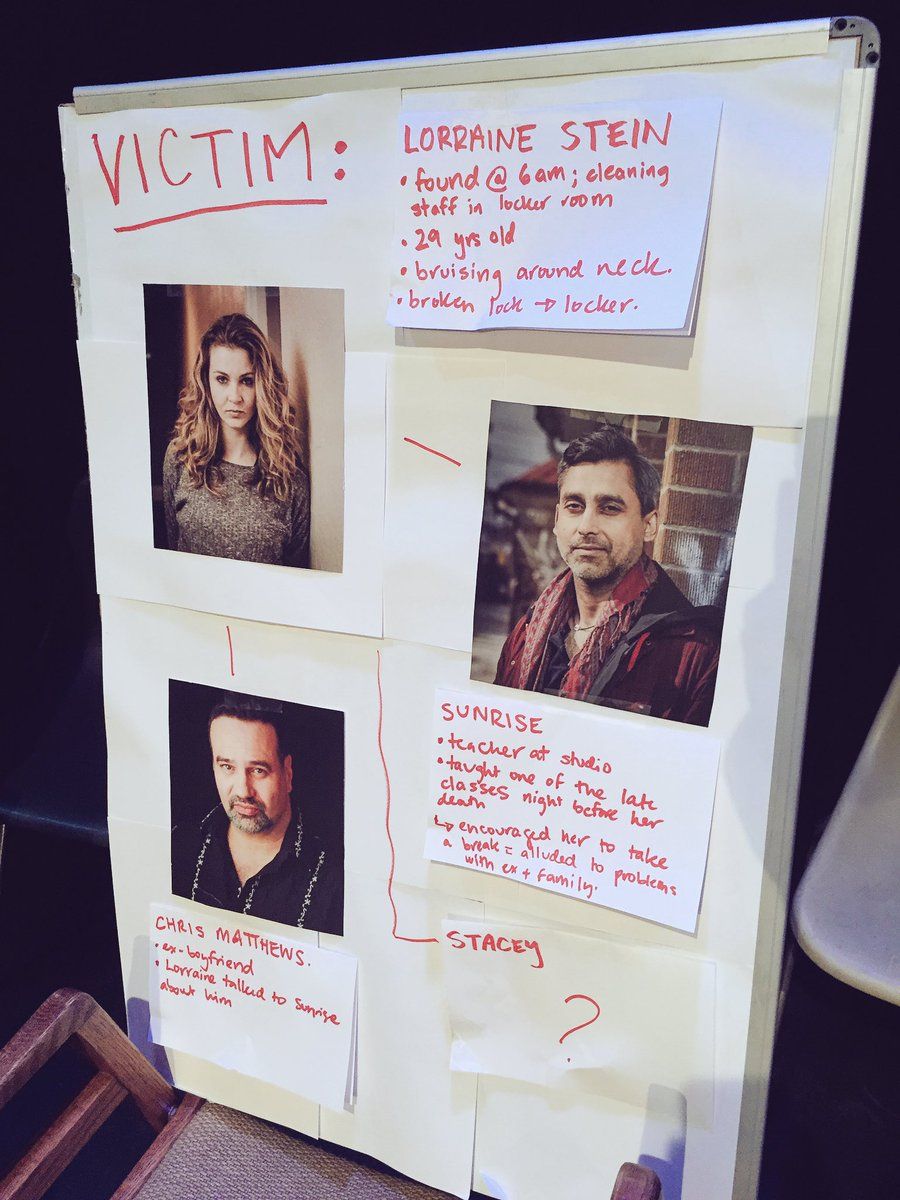 VICTIM:
LORRAINE STEIN
• found @ 6am; cleaning
staff in locker room
• 29 yrs old
• bruising around neck.
• broken lock → locker.
SUNRISE
• teacher at studio
• taught one of the late
classes night before her
death
↳ encouraged her to take
a break = alluded to problems
with ex + family.
CHRIS MATTHEWS.
• ex-boyfriend
• Lorraine talked to Sunrise
about him
STACEY
?